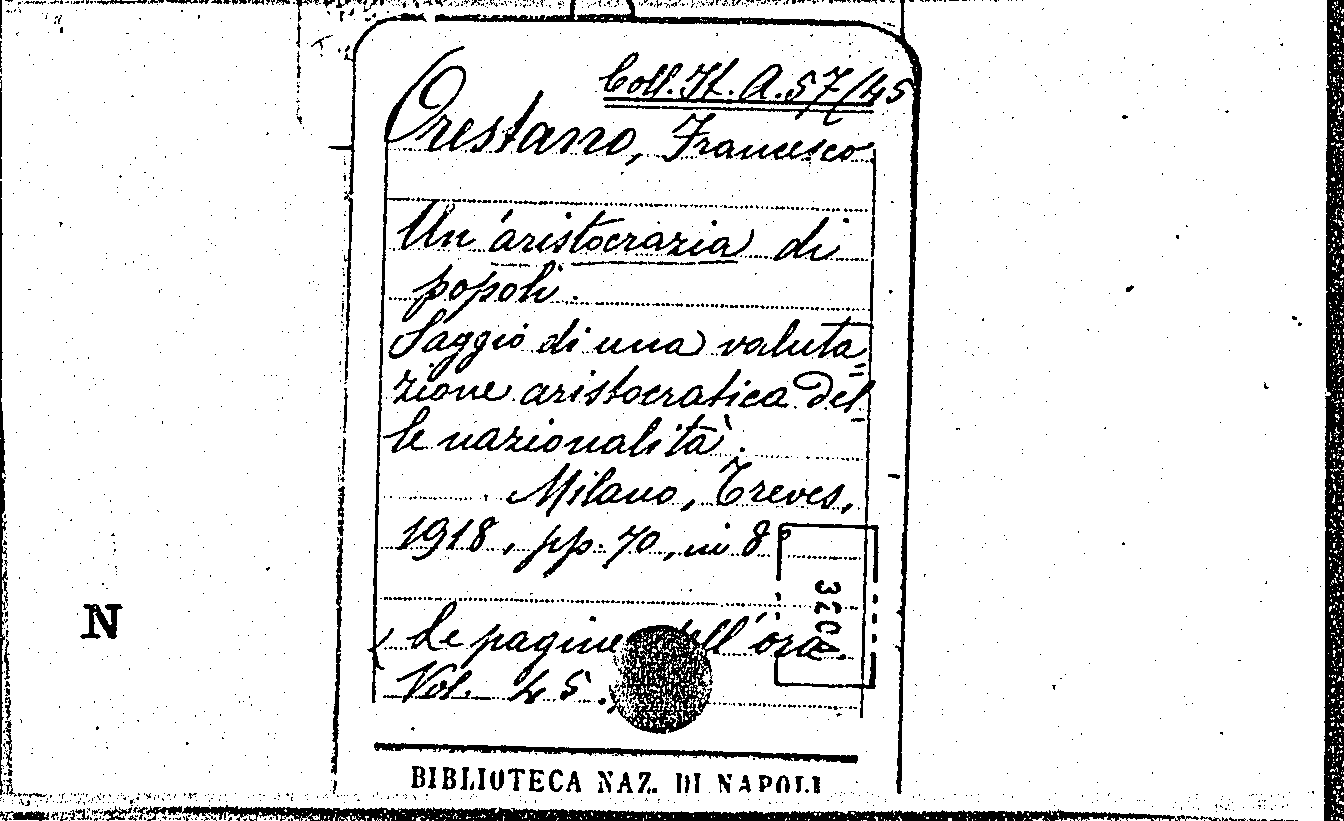 Coll. It. A. 57/45
Orestano, Francesco
Un'aristocrazia di
popoli.
Saggio di una valuta=
zione aristocratica del=
le nazionalità.
Milano, Treves,
1918, pp. 70, in 8°
(Le pagine dell'ora.
Vol. 45.
N
BIBLIOTECA NAZ. DI NAPOLI